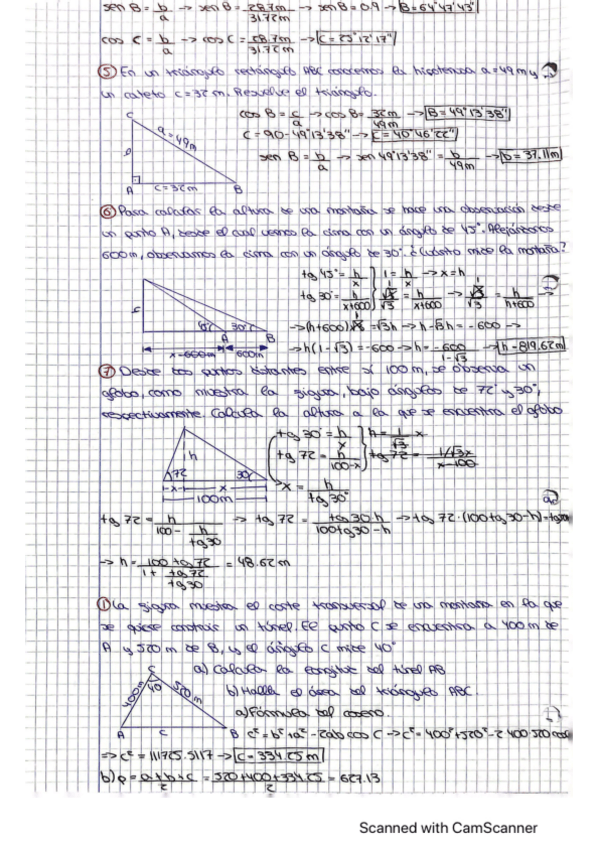 sen B = b/a → sen B = 28.7m/31.72m → sen B = 0.9 → B = 64°47'43"
cos C = b/a → cos C = 28.7m/31.72m → C = 25°12'17"
⑤ En un triángulo rectángulo ABC conocemos la hipotenusa a = 49 m y
un cateto c = 32 m. Resuelve el triángulo.
C
cos B = c/a → cos B = 32m/49m → B = 49°13'38"
a = 49m
C = 90 - 49°13'38" → C = 40°46'22"
b
sen B = b/a → sen 49°13'38" = b/49m → b = 37.11m
A c = 32m B
⑥ Para calcular la altura de una montaña se hace una observación desde
un punto A, desde el cual vemos la cima con un ángulo de 45°. Alejándonos
600m, observamos la cima con un ángulo de 30°. ¿Cuánto mide la montaña?
tg 45° = h/x } 1 = h/x → x = h
tg 30° = h/x+600
h/x+600
h/h+600 →
→ (h+600) = √3h → h - √3h = -600 →
45° 30° A B
x-600m 600m
→ h(1-√3) = -600 → h = -600/1-√3 → h = 819.62m
⑦ Desde dos puntos distantes entre sí 100m, se observa un
globo, como muestra la figura, bajo ángulos de 72° y 30°,
respectivamente. Calcula la altura a la que se encuentra el globo
tg 30° = h/x } h = 1/√3 x
h
tg 72 = h/100-x } tg 72 = 1/√3x/x-100
72 30°
x
100m
→ x = h/tg 30°
tg 72 = h/100 - h/tg 30 → tg 72 = tg 30 h/100tg 30 - h → tg 72 · (100tg 30 - h) =
→ h = 100 tg 72/1 + tg 72/tg 30 = 48.62m
① La figura muestra el corte transversal de una montaña en la que
se quiere construir un túnel. El punto C se encuentra a 400m de
A y 520m de B, y el ángulo C mide 40°
a) Calcula la longitud del túnel AB
C
b) Halla el área del triángulo ABC.
400m 40 520m
a) Fórmula del coseno.
A c B
c² = b² + a² - 2ab cos C → c² = 400² + 520² - 2 400 520 cos
⇒ c² = 111725.5117 → c = 334.25 m
b) p = a+b+c/2 = 520+400+334.25/2 = 627.13
Scanned with CamScanner